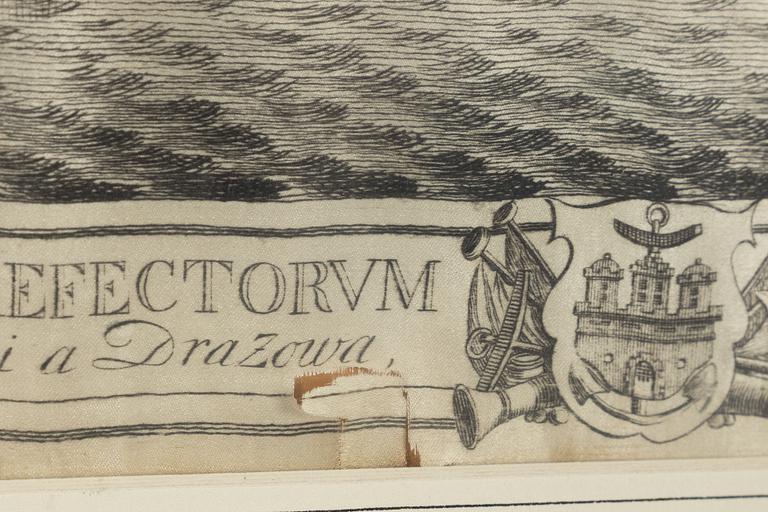 EFECTORVM
i a Drazowa,